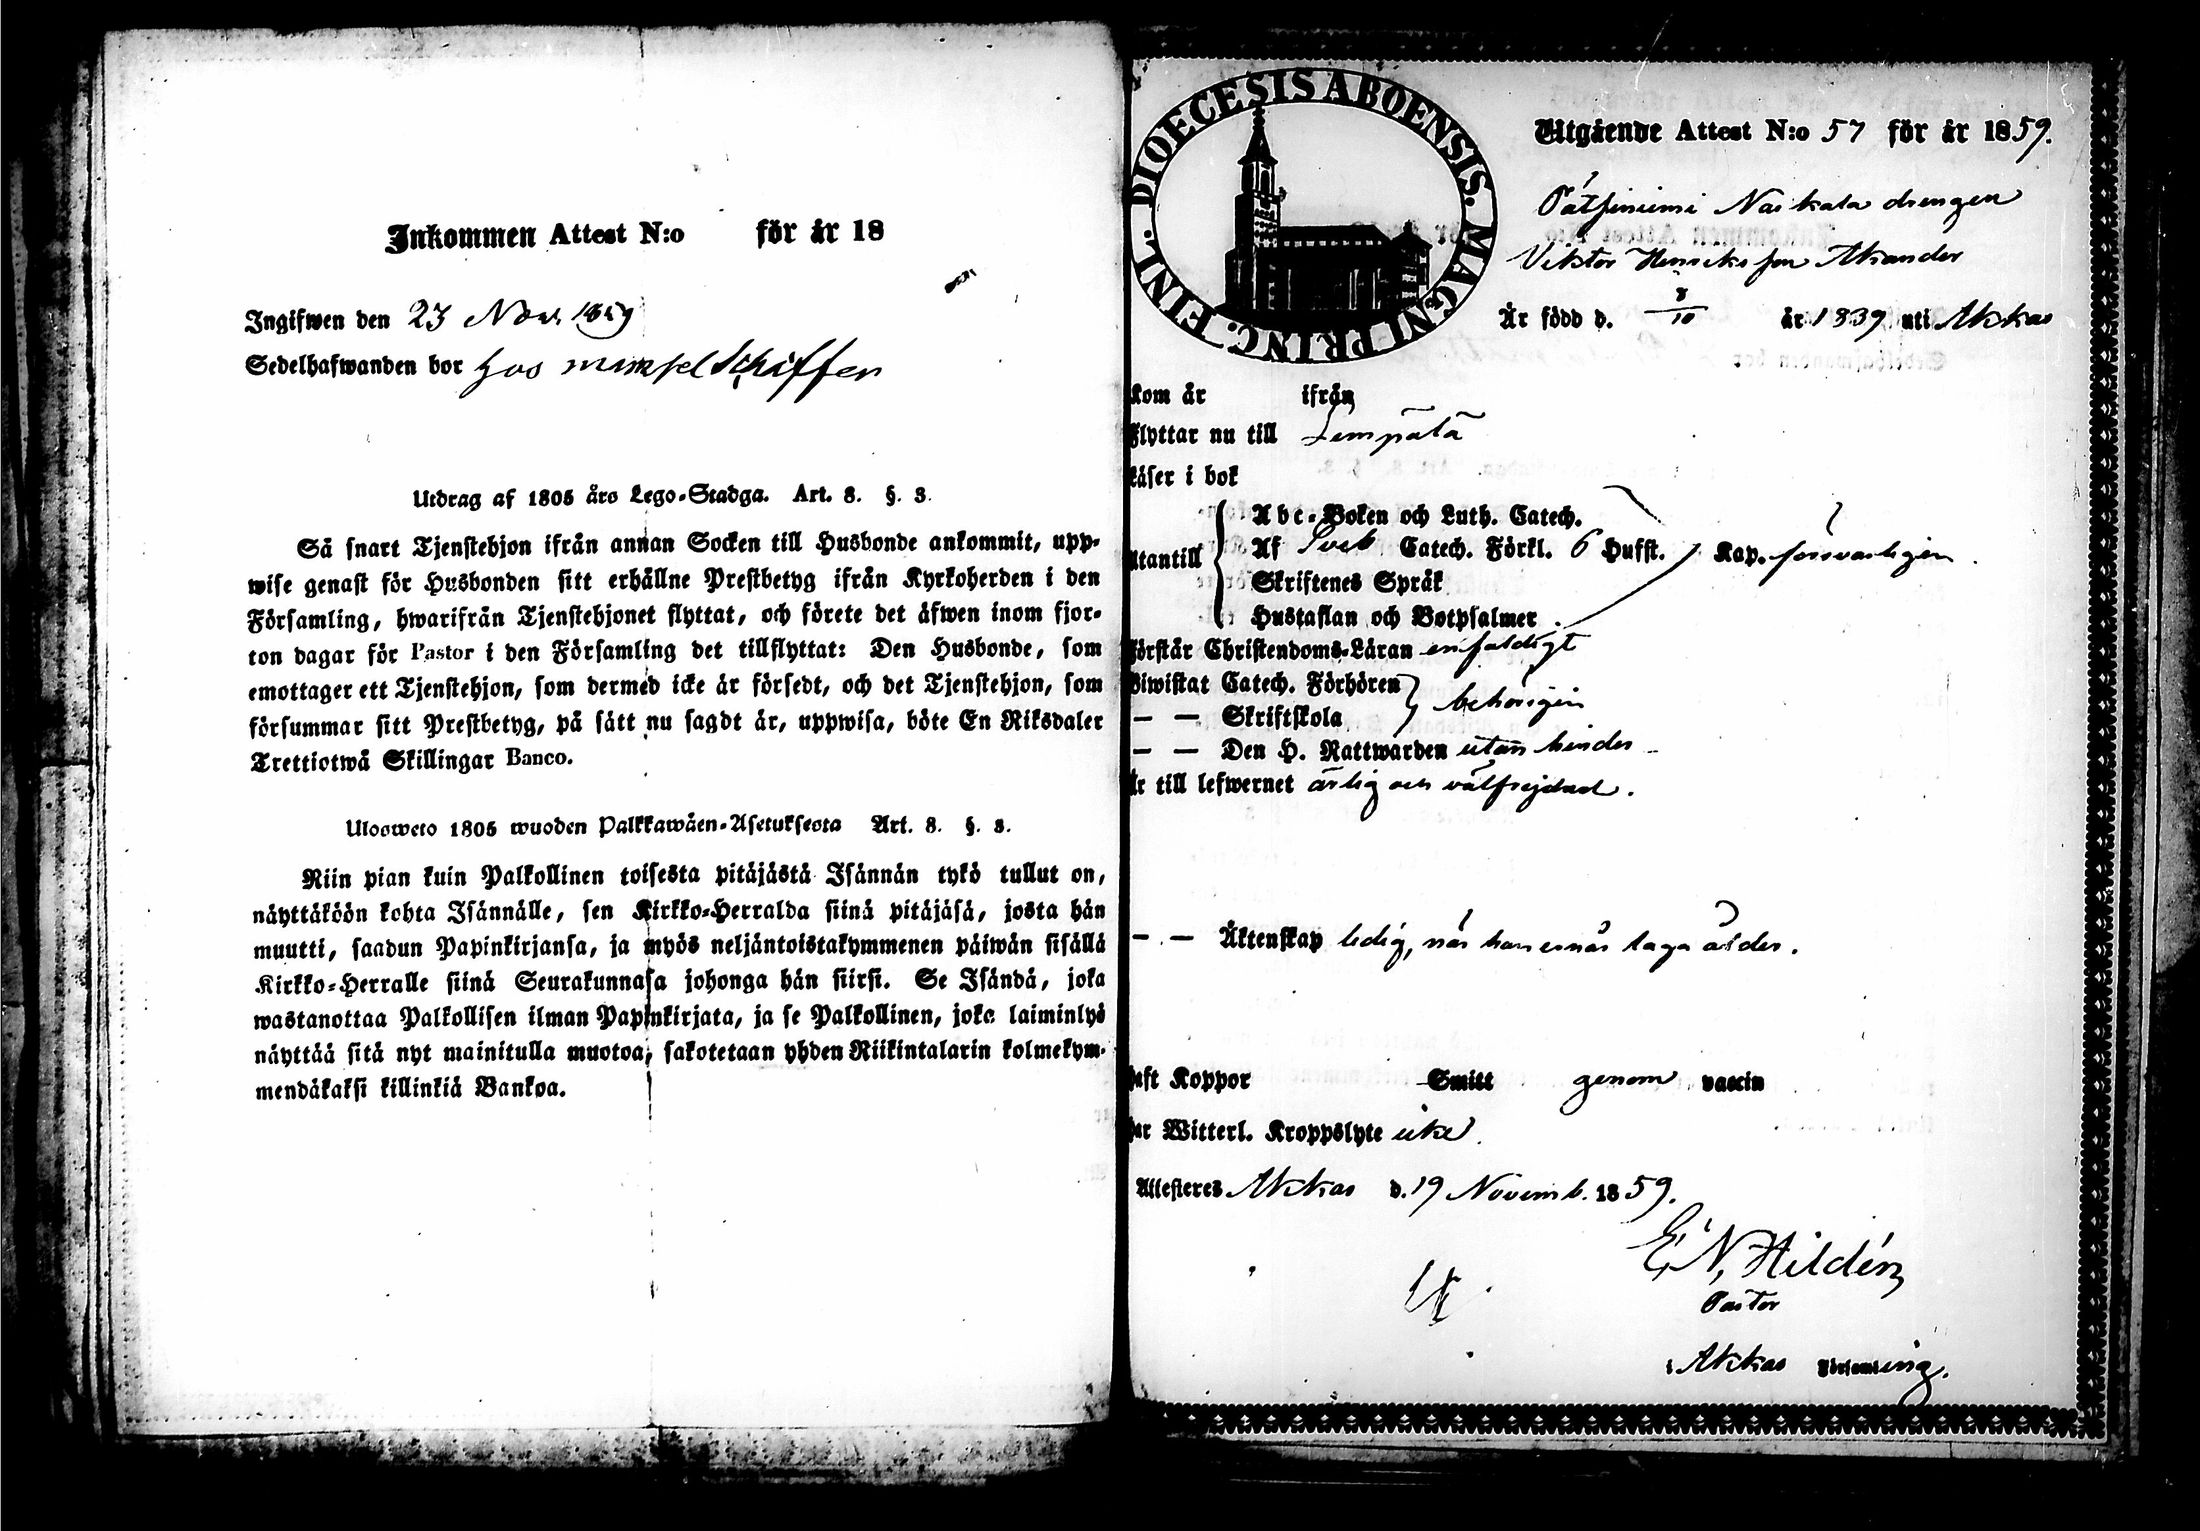 Inkommen Attest N:o för år 18
Ingifwen den 23 Nov. 1859
Sedelhafwanden bor hos mamsel Schiffer
Utdrag af 1805 års Lego-Stadga. Art. 8. §. 3.
Så snart Tjenstehjon ifrån annan Socken till Husbonde ankommit, upp-
wise genast för Husbonden sitt erhållne Prestbetyg ifrån Kyrkoherden i den
Församling, hwarifrån Tjenstehjonet flyttat, och förete det äfwen inom fjor-
ton dagar för Pastor i den Församling det tillflyttat: Den Husbonde, som
emottager ett Tjenstehjon, som dermed icke är försedt, och det Tjenstehjon, som
försummar sitt Prestbetyg, på sätt nu sagdt är, uppwisa, böte En Riksdaler
Trettiotwå Skillingar Banco.
Ulosweto 1805 wuoden Palkkawäen-Asetuksesta Art. 8. §. 3.
Niin pian kuin Palkollinen toisesta pitäjästä Isännän tykö tullut on,
näyttäköön kohta Isännälle, sen Kirkko-Herralda siinä pitäjäsä, josta hän
muutti, saadun Papinkirjansa, ja myös neljäntoistakymmenen päiwän sisällä
Kirkko-Herralle siinä Seurakunnasa johonga hän siirsi. Se Isändä, joka
wastanottaa Palkollisen ilman Papinkirjata, ja se Palkollinen, joka laiminlyö
näyttää sitä nyt mainitulla muotoa, sakotetaan yhden Riikintalarin kolmekym-
mendäkaksi killinkiä Bankoa.
DIOECESIS ABOENSIS. MAGNI PRINC. FINL.
Utgående Attest N:o 57 för år 1859.
Naikala drengen
Viktor Henriksson Akander
Är född d. 8/10 år 1839 uti Akkas
kom år ifrån
Flyttar nu till Lempälä
Läser i bok
Abc-Boken och Luth. Catech.
Utantill Af Sveb Catech. Förkl. 6 Hufst. Kap. försvarligen
Skriftenes Språk
Hustaflan och Botpsalmer.
Förstår Christendoms-Läran enfaldigt
Biwistat Catech. Förhören
— — Skriftskola behörigen
— — Den H. Nattwarden utan hinder
Är till lefwernet ärlig och välfrejdad.
— — Äktenskap ledig, når han ernår laga ålder.
haft Koppor Smitt genom vaccin
har Witterl. Kroppslyte icke
Attesteres Akkas d. 19 Novemb. 1859.
E. N. Hildén
Pastor
i Akkas Församling.